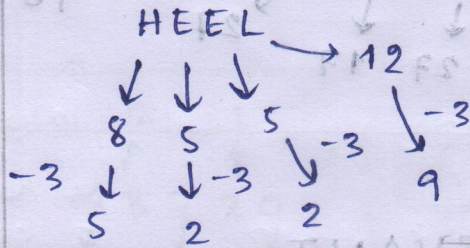 HEEL
12
8 5 5 -3
-3 -3 -3
5 2 2 9